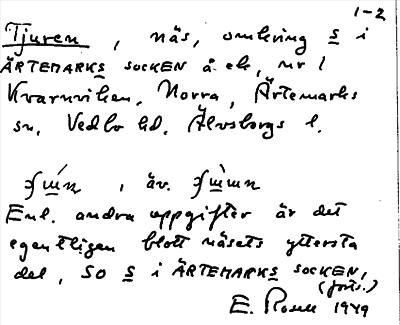 1-2
Tjuren, näs, omkring s i
ÄRTEMARKS SOCKEN å ek, nr 1
Kvarnviken, Norra, Ärtemarks
sn, Vedbo hd, Älvsborgs l.
, äv.
Enl. andra uppgifter är det
egentligen blott näsets yttersta
del, SO s i ÄRTEMARKS SOCKEN,
(forts.)
E. Rosell 1949